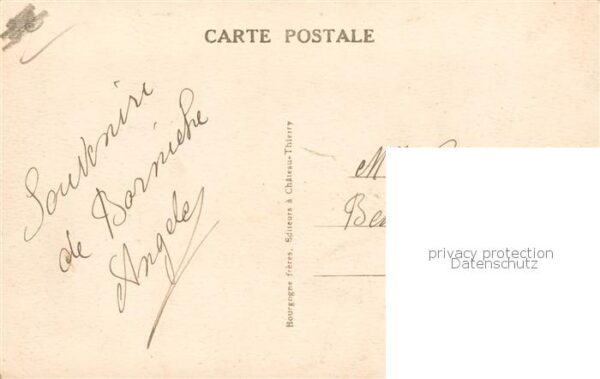 CARTE POSTALE
Souvenirs
de
Angele
Bourgogne frères, Editeurs à Château-Thierry
privacy protection
Datenschutz